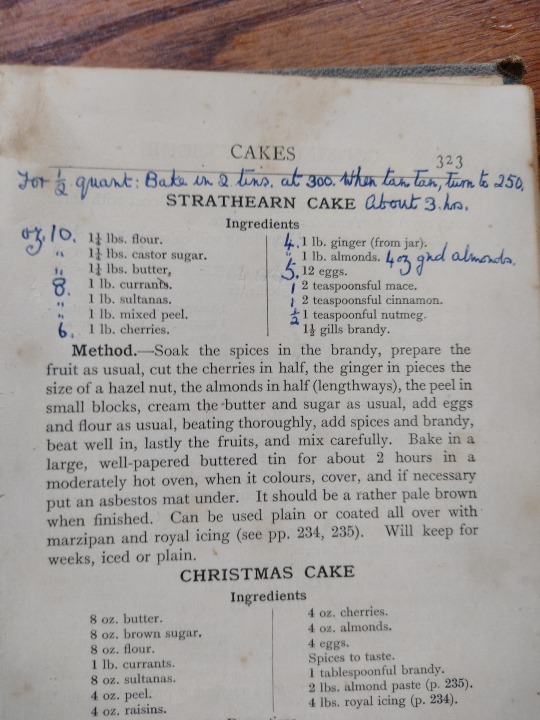 CAKES
323
For ½ quant: Bake in 2 tins. at 300. When tan tan, turn to 250.
STRATHEARN CAKE About 3 hrs.
Ingredients
oz. 10. 1¼ lbs. flour.
" 1¼ lbs. castor sugar.
" 1¼ lbs. butter,
8. 1 lb. currants.
" 1 lb. sultanas.
" 1 lb. mixed peel.
6. 1 lb. cherries.
4. 1 lb. ginger (from jar).
" 1 lb. almonds. 4 oz gnd almonds.
5. 12 eggs.
1 2 teaspoonsful mace.
1 2 teaspoonsful cinnamon.
½ 1 teaspoonful nutmeg.
1½ gills brandy.
Method.—Soak the spices in the brandy, prepare the
fruit as usual, cut the cherries in half, the ginger in pieces the
size of a hazel nut, the almonds in half (lengthways), the peel in
small blocks, cream the butter and sugar as usual, add eggs
and flour as usual, beating thoroughly, add spices and brandy,
beat well in, lastly the fruits, and mix carefully. Bake in a
large, well-papered buttered tin for about 2 hours in a
moderately hot oven, when it colours, cover, and if necessary
put an asbestos mat under. It should be a rather pale brown
when finished. Can be used plain or coated all over with
marzipan and royal icing (see pp. 234, 235). Will keep for
weeks, iced or plain.
CHRISTMAS CAKE
Ingredients
8 oz. butter.
8 oz. brown sugar.
8 oz. flour.
1 lb. currants.
8 oz. sultanas.
4 oz. peel.
4 oz. raisins.
4 oz. cherries.
4 oz. almonds.
4 eggs.
Spices to taste.
1 tablespoonful brandy.
2 lbs. almond paste (p. 235).
4 lbs. royal icing (p. 234).